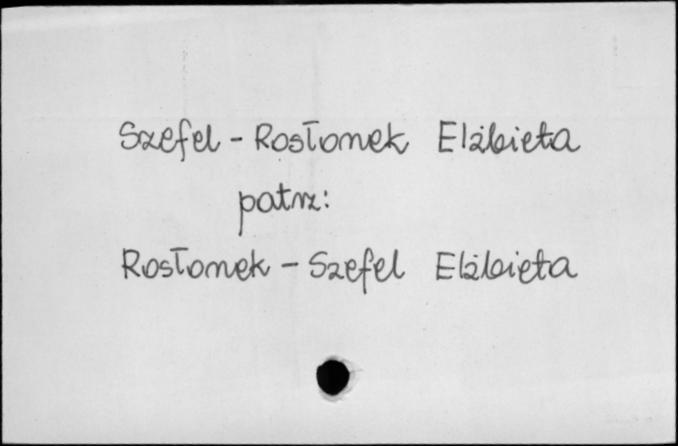 Szefel - Rosłomek Elżbieta
patrz:
Rosłomek - Szefel Elżbieta